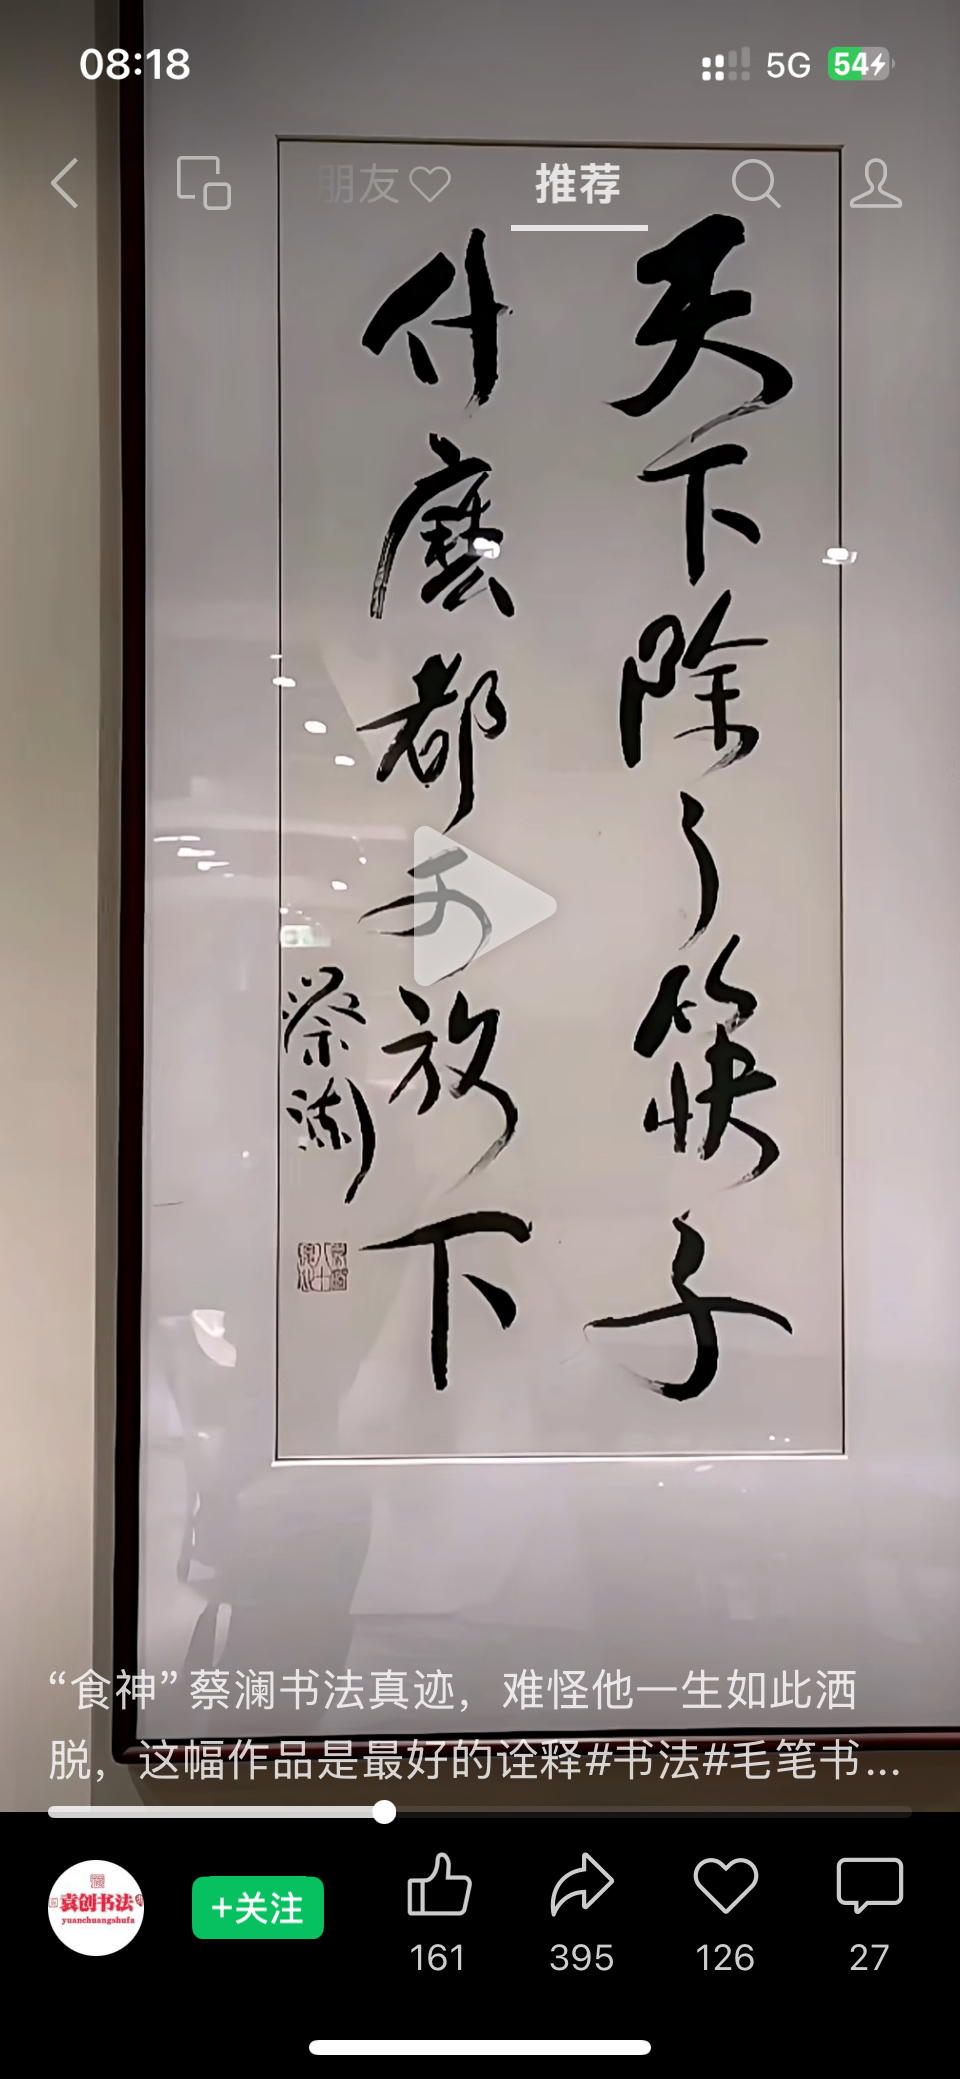 08:18
5G
54
朋友
推荐
天下除了筷子
什麼都可放下
蔡瀾
“食神”蔡澜书法真迹，难怪他一生如此洒
脱，这幅作品是最好的诠释#书法#毛笔书...
袁创书法
yuanchuangshufa
+关注
161
395
126
27